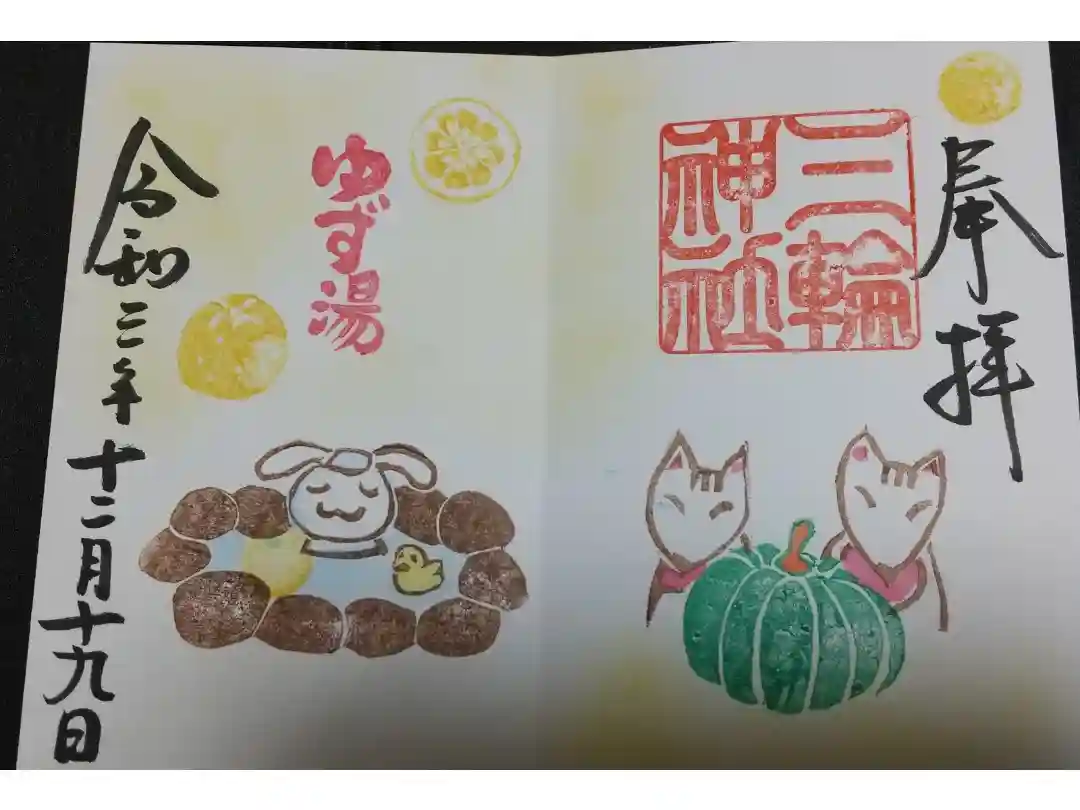 奉拝
三輪
神社
ゆず湯
令和三年十二月十九日